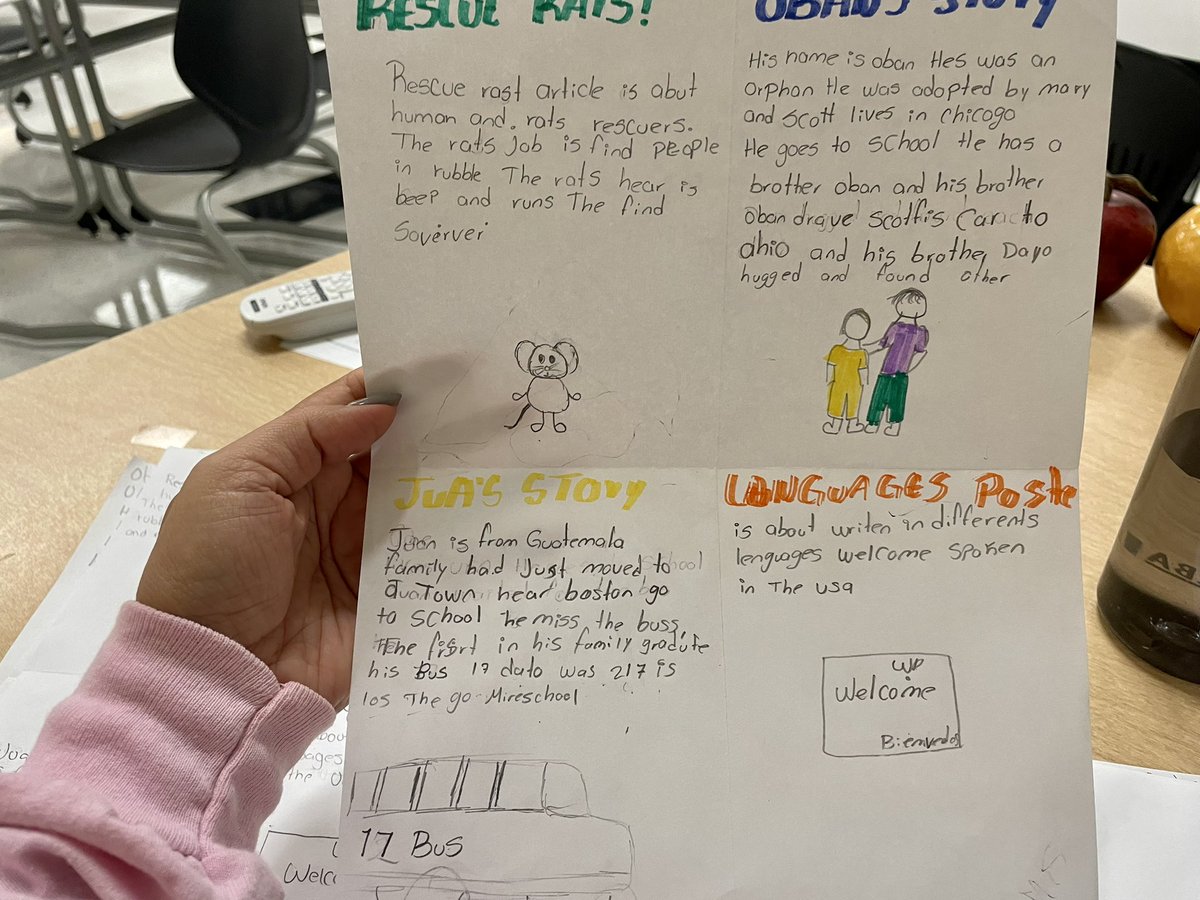 RESCUE RATS!
Rescue rast article is abut
human and. rats rescuers.
The rats job is find PEOPLE
in rubble The rats hear is
beep and runs The find
Soverver
OBAN'S STORY
His name is oban Hes was an
orphan He was adopted by mary
and scott lives in chicago
He goes to school He has a
brother oban and his brother
oban Scottis Car to
ohio and his brother Dayo
hugged and found other
JUA'S STORY
Juan is from Guatemala
family had Just moved to
a Town near boston go
to school he miss the buss,
The first in his family
his Bus 17 dato was 217 is
los The go
17 Bus
LANGUAGES Poste
is about writen in differents
lenguages welcome spoken
in The usa
Welcome
Bienvedos
BA
Welc